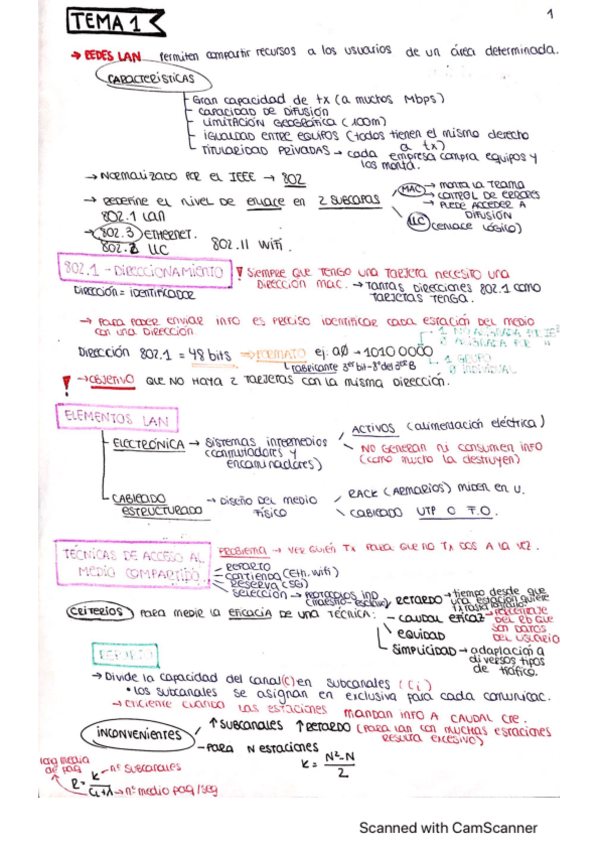 1
TEMA 1
→ REDES LAN permiten compartir recursos a los usuarios de un área determinada.
CARACTERÍSTICAS
Gran capacidad de tx (a muchos Mbps)
CAPACIDAD DE DIFUSIÓN
LIMITACIÓN GEOGRÁFICA (100m)
IGUALDAD ENTRE EQUIPOS (todos tienen el mismo derecho a tx)
TITULARIDAD PRIVADAS → cada empresa compra equipos y los monta.
→ NORMALIZADO POR EL IEEE → 802
→ REDEFINE EL NIVEL DE ENLACE EN 2 SUBCAPAS
MAC → MONTA LA TRAMA
→ CONTROL DE ERRORES
→ PUEDE ACCEDER A DIFUSIÓN
LLC (enlace lógico)
802.1 LAN
→ 802.3 ETHERNET.
802.2 LLC 802.11 WiFi.
802.1 - DIRECCIONAMIENTO
! SIEMPRE QUE TENGO UNA TARJETA NECESITO UNA DIRECCIÓN MAC. → TANTAS DIRECCIONES 802.1 COMO TARJETAS TENGA.
DIRECCIÓN = IDENTIFICADOR
→ PARA PODER ENVIAR INFO ES PRECISO IDENTIFICAR CADA ESTACIÓN DEL MEDIO CON UNA DIRECCIÓN
Dirección 802.1 = 48 bits → FORMATO ej. A0 → 1010 0000
1 GRUPO
0 INDIVIDUAL
! → OBJETIVO QUE NO HAYA 2 TARJETAS CON LA MISMA DIRECCIÓN.
ELEMENTOS LAN
ELECTRÓNICA → SISTEMAS INTERMEDIOS (conmutadores y encaminadores)
ACTIVOS (alimentación eléctrica)
NO GENERAN NI CONSUMEN INFO (como mucho la destruyen)
CABLEADO ESTRUCTURADO → DISEÑO DEL MEDIO FÍSICO
RACK (ARMARIOS) MIDEN EN U.
CABLEADO UTP O F.O.
TÉCNICAS DE ACCESO AL MEDIO COMPARTIDO
PROBLEMA → VER QUIÉN TX PARA QUE NO TX DOS A LA VEZ.
REPARTO
CONTIENDA (Eth, wifi)
RESERVA (5G)
SELECCIÓN → PROTOCOLOS IND (maestro-esclavo)
CRITERIOS PARA MEDIR LA EFICACIA DE UNA TÉCNICA:
RETARDO → tiempo desde que una estación quiere
CAUDAL EFICAZ → PORCENTAJE DEL Rb QUE SON DATOS DEL USUARIO
EQUIDAD
SIMPLICIDAD → adaptación a diversos tipos de tráfico.
REPARTO
→ Divide la capacidad del canal (C) en subcanales (Ci)
• los subcanales se asignan en exclusiva para cada comunicac.
→ eficiente cuando las estaciones mandan info A CAUDAL CTE.
INCONVENIENTES
↑ SUBCANALES ↑ RETARDO (para LAN con muchas estaciones resulta excesivo)
- PARA N ESTACIONES
k = N²-N / 2
k → nº subcanales
→ nº medio paq/seg
Scanned with CamScanner